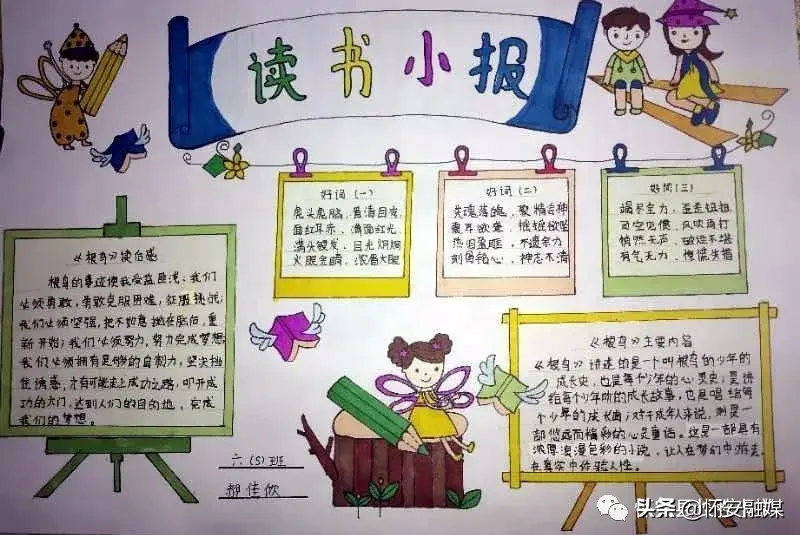 读书小报
好词(一)
虎头虎脑、眉清目秀
面红耳赤、满面红光
满头银发、目光炯炯
火眼金睛、浓眉大眼
好词(二)
失魂落魄、聚精会神
震耳欲聋、摇摇欲坠
热泪盈眶、不遗余力
刻骨铭心、神志不清
好词(三)
竭尽全力、歪歪扭扭
司空见惯、风吹雨打
悄然无声、破烂不堪
有气无力、惊慌失措
《根鸟》读后感
根鸟的事迹使我受益匪浅:我们
必须勇敢,勇敢克服困难,征服挑战;
我们必须坚强,把不如意抛在脑后,重
新开始;我们必须努力,努力完成梦想
我们必须拥有足够的自制力,坚决抵
住诱惑,才有可能走上成功之路,叩开成
功的大门,达到人们的目的地,完成
我们的梦想。
《根鸟》主要内容
《根鸟》讲述的是一个叫根鸟的少年的
成长史,也是每个少年的心灵史;是讲
给每个少年听的成长故事,也是唱给每
个少年的成长曲;对于成年人来说,则是一
部悠远而精彩的心灵童话。这是一部具有
浓厚浪漫色彩的小说,让人在梦幻中游走
在真实中体验人性。
六(5)班
郝佳欣
头条 @怀安融媒